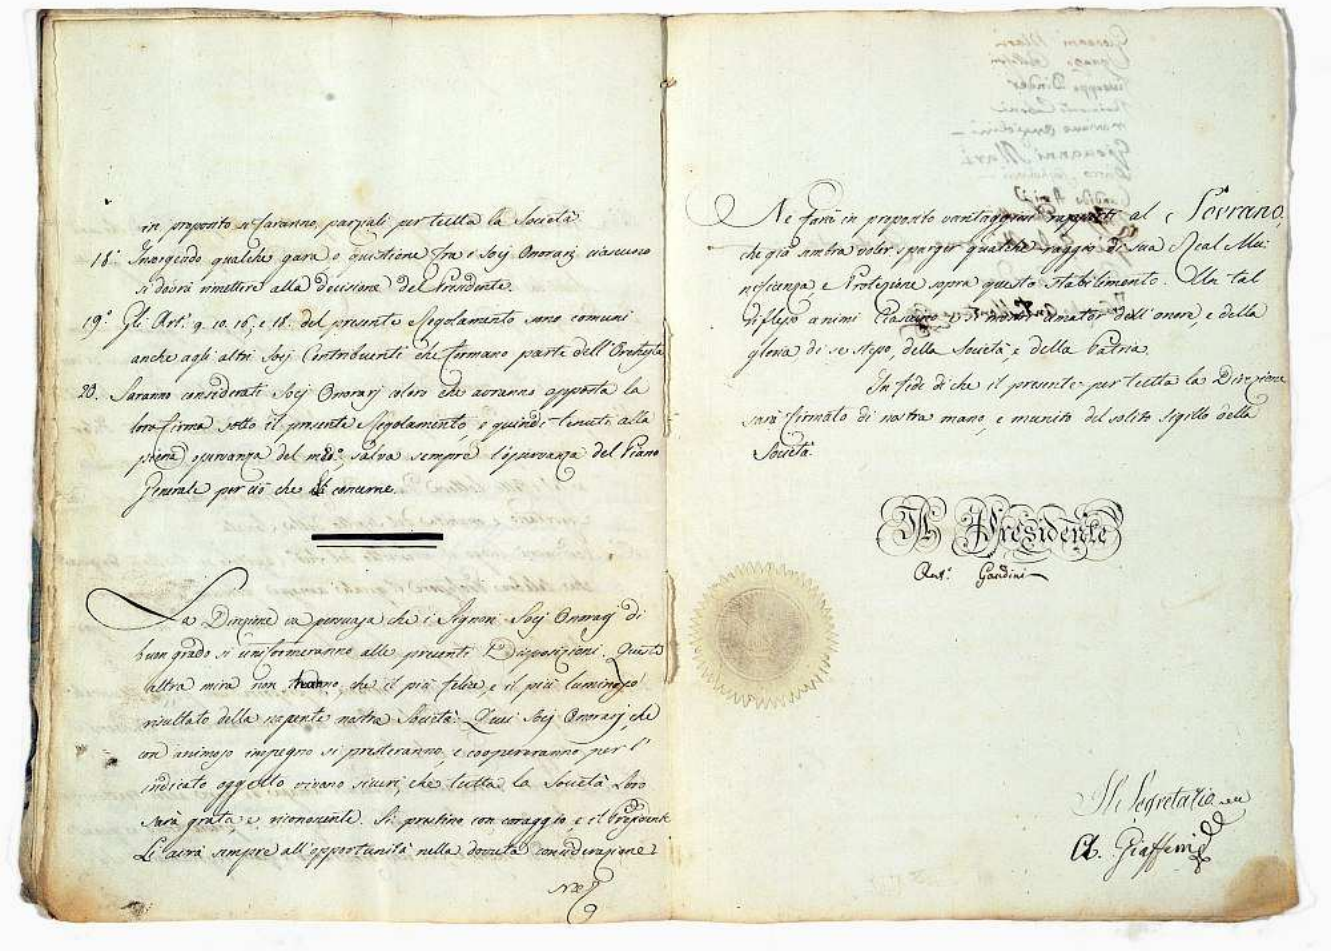 in proposito si faranno parziali per tutta la Società.
18.° Insorgendo qualche gara o quistione fra i Socj Onorarj ciascuno
si dovrà rimettere alla decisione del Presidente.
19.° Gli Art.i 9. 10. 16, e 18. del presente Regolamento sono comuni
anche agli altri Socj Contribuenti che formano parte dell'Orchestra
20. Saranno considerati Socj Onorarj coloro che avranno apposta la
loro firma sotto il presente Regolamento, e quindi tenuti alla
piena osservanza del med.° salva sempre l'osservanza del Piano
Generale per ciò che li concerne.
La Direzione va persuasa che i Signori Socj Onorarj di
buon grado si uniformeranno alle presenti Disposizioni. Queste
altra mira non hanno, che il più felice, e il più luminoso
risultato della nascente nostra Società. Quei Socj Onorarj, che
con animoso impegno si presteranno, e coopereranno per l'
indicato oggetto vivano sicuri, che tutta la Società Loro
sarà grata e riconoscente. Si prestino con coraggio, e il Presidente
Li avrà sempre all'opportunità nella dovuta considerazione.
Ne
Ne farà in proposito vantaggiosi rapporti al Sovrano,
che già sembra voler sparger qualche raggio di sua Real Mu:
nificenza, e Protezione sopra questo Stabilimento. Un tal
riflesso animi Ciascuno amator dell'onore, e della
gloria di se stesso, della Società, e della Patria.
In fede di che il presente per tutta la Direzione
sarà firmato di nostra mano, e munito del solito sigillo della
Società.
Il Presidente
Ant.° Gandini
Il Segretario
A. Giafferri